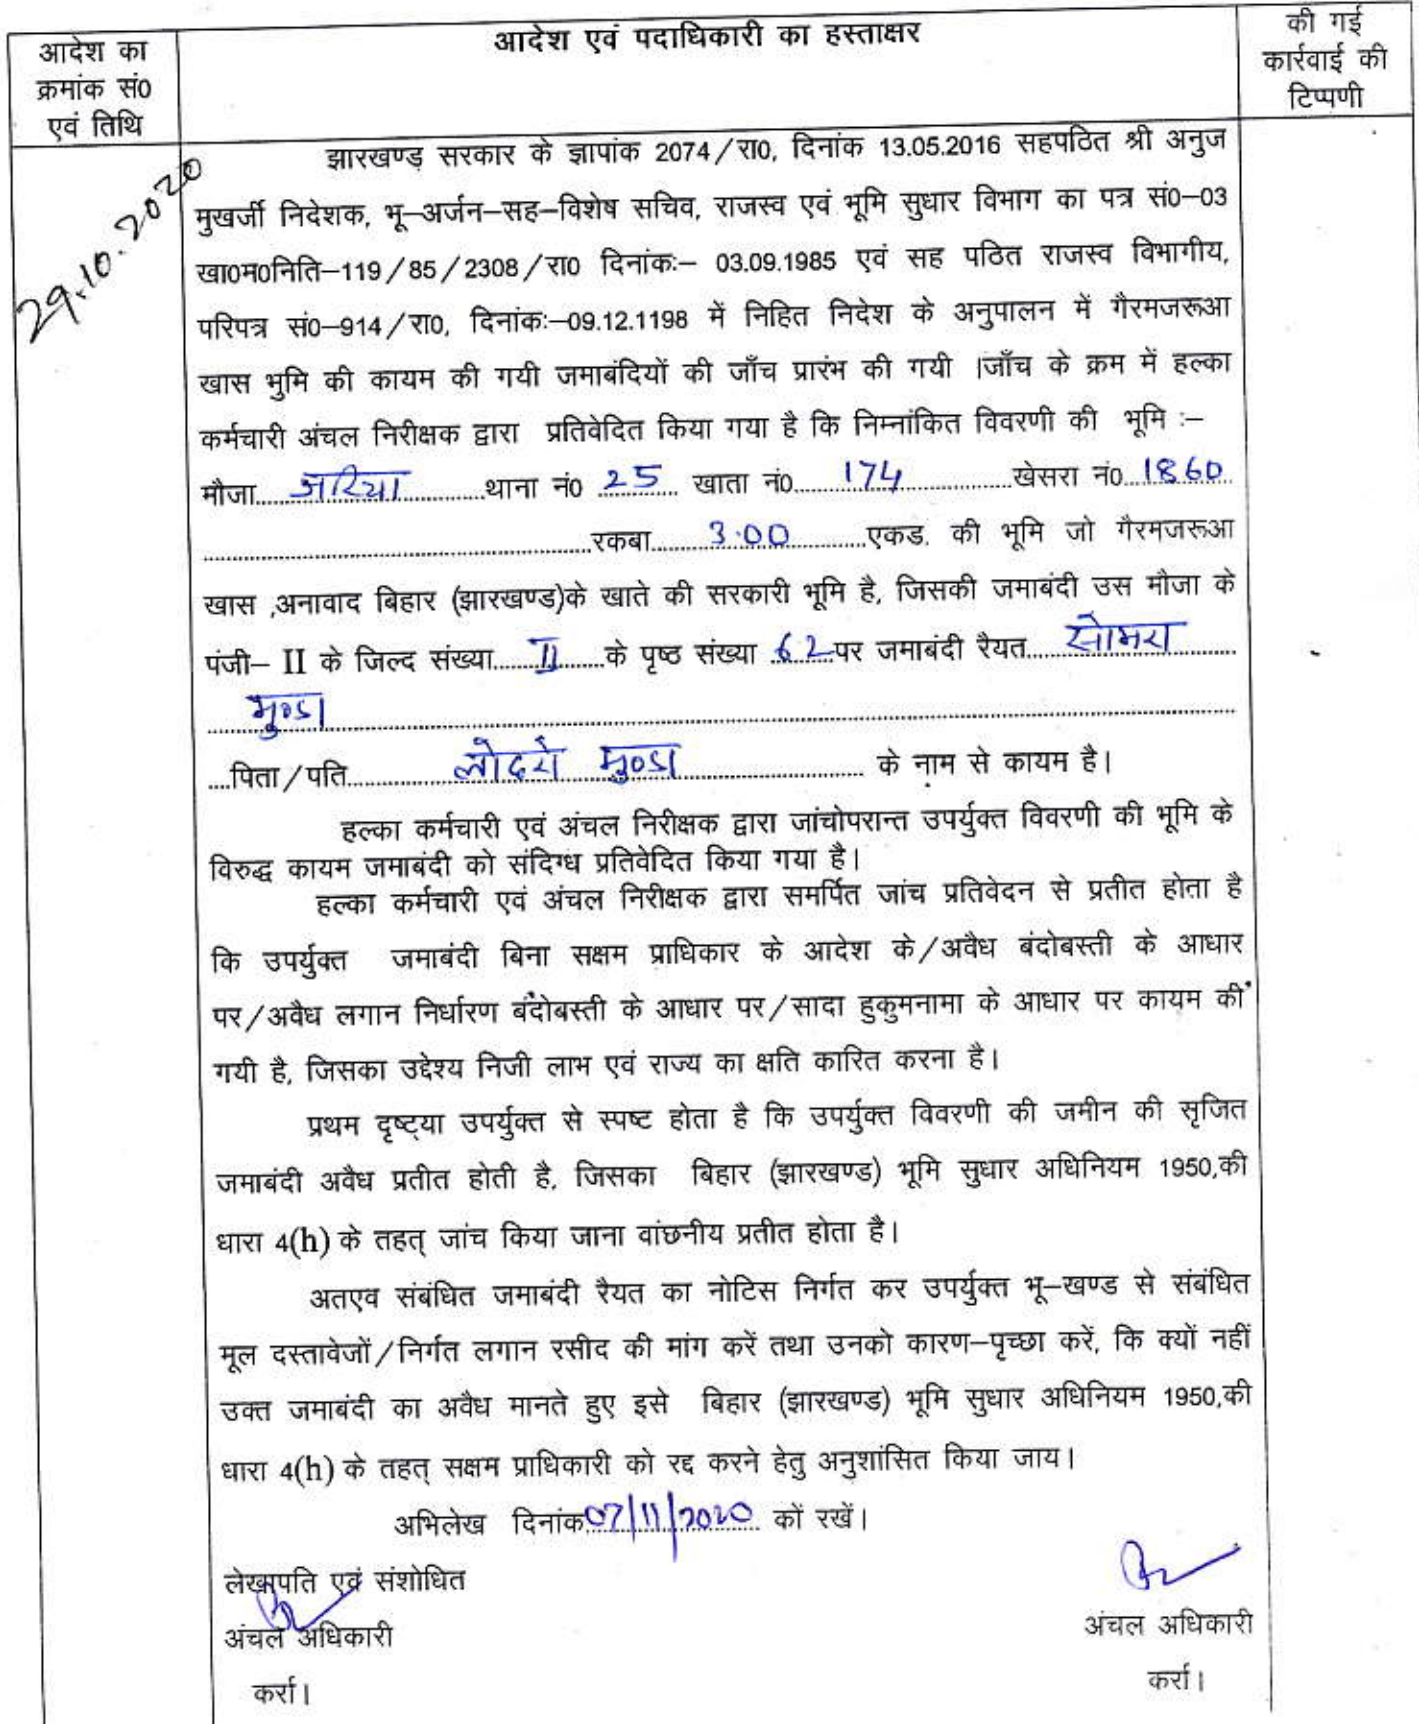 आदेश का
क्रमांक सं0
एवं तिथि
आदेश एवं पदाधिकारी का हस्ताक्षर
की गई
कार्रवाई की
टिप्पणी
29.10.2020
झारखण्ड़ सरकार के ज्ञापांक 2074/रा0, दिनांक 13.05.2016 सहपठित श्री अनुज
मुखर्जी निदेशक, भू–अर्जन–सह–विशेष सचिव, राजस्व एवं भूमि सुधार विभाग का पत्र सं0–03
खा0म0निति–119/85/2308/रा0 दिनांकः– 03.09.1985 एवं सह पठित राजस्व विभागीय,
परिपत्र सं0–914/रा0, दिनांकः–09.12.1198 में निहित निदेश के अनुपालन में गैरमजरूआ
खास भुमि की कायम की गयी जमाबंदियों की जाँच प्रारंभ की गयी ।जाँच के क्रम में हल्का
कर्मचारी अंचल निरीक्षक द्वारा प्रतिवेदित किया गया है कि निम्नांकित विवरणी की भूमि :–
मौजा.....जरिया.....थाना नं0 25 खाता नं0.....174.....खेसरा नं0..1860
.....रकबा.....3.00.....एकड. की भूमि जो गैरमजरूआ
खास ,अनावाद बिहार (झारखण्ड)के खाते की सरकारी भूमि है, जिसकी जमाबंदी उस मौजा के
पंजी– II के जिल्द संख्या.....II.....के पृष्ठ संख्या 62 पर जमाबंदी रैयत.....सोमरा
मुण्डा
....पिता/पति.....लोदरो मुण्डा..... के नाम से कायम है।
हल्का कर्मचारी एवं अंचल निरीक्षक द्वारा जांचोपरान्त उपर्युक्त विवरणी की भूमि के
विरुद्ध कायम जमाबंदी को संदिग्ध प्रतिवेदित किया गया है।
हल्का कर्मचारी एवं अंचल निरीक्षक द्वारा समर्पित जांच प्रतिवेदन से प्रतीत होता है
कि उपर्युक्त जमाबंदी बिना सक्षम प्राधिकार के आदेश के/अवैध बंदोबस्ती के आधार
पर/अवैध लगान निर्धारण बंदोबस्ती के आधार पर/सादा हुकुमनामा के आधार पर कायम की
गयी है, जिसका उद्देश्य निजी लाभ एवं राज्य का क्षति कारित करना है।
प्रथम दृष्ट्या उपर्युक्त से स्पष्ट होता है कि उपर्युक्त विवरणी की जमीन की सृजित
जमाबंदी अवैध प्रतीत होती है, जिसका बिहार (झारखण्ड) भूमि सुधार अधिनियम 1950,की
धारा 4(h) के तहत् जांच किया जाना वांछनीय प्रतीत होता है।
अतएव संबंधित जमाबंदी रैयत का नोटिस निर्गत कर उपर्युक्त भू–खण्ड से संबंधित
मूल दस्तावेजों/निर्गत लगान रसीद की मांग करें तथा उनको कारण–पृच्छा करें, कि क्यों नहीं
उक्त जमाबंदी का अवैध मानते हुए इसे बिहार (झारखण्ड) भूमि सुधार अधिनियम 1950,की
धारा 4(h) के तहत् सक्षम प्राधिकारी को रद्द करने हेतु अनुशांसित किया जाय।
अभिलेख दिनांक 07/11/2020 कों रखें।
लेखापति एवं संशोधित
अंचल अधिकारी
कर्रा।
अंचल अधिकारी
कर्रा।